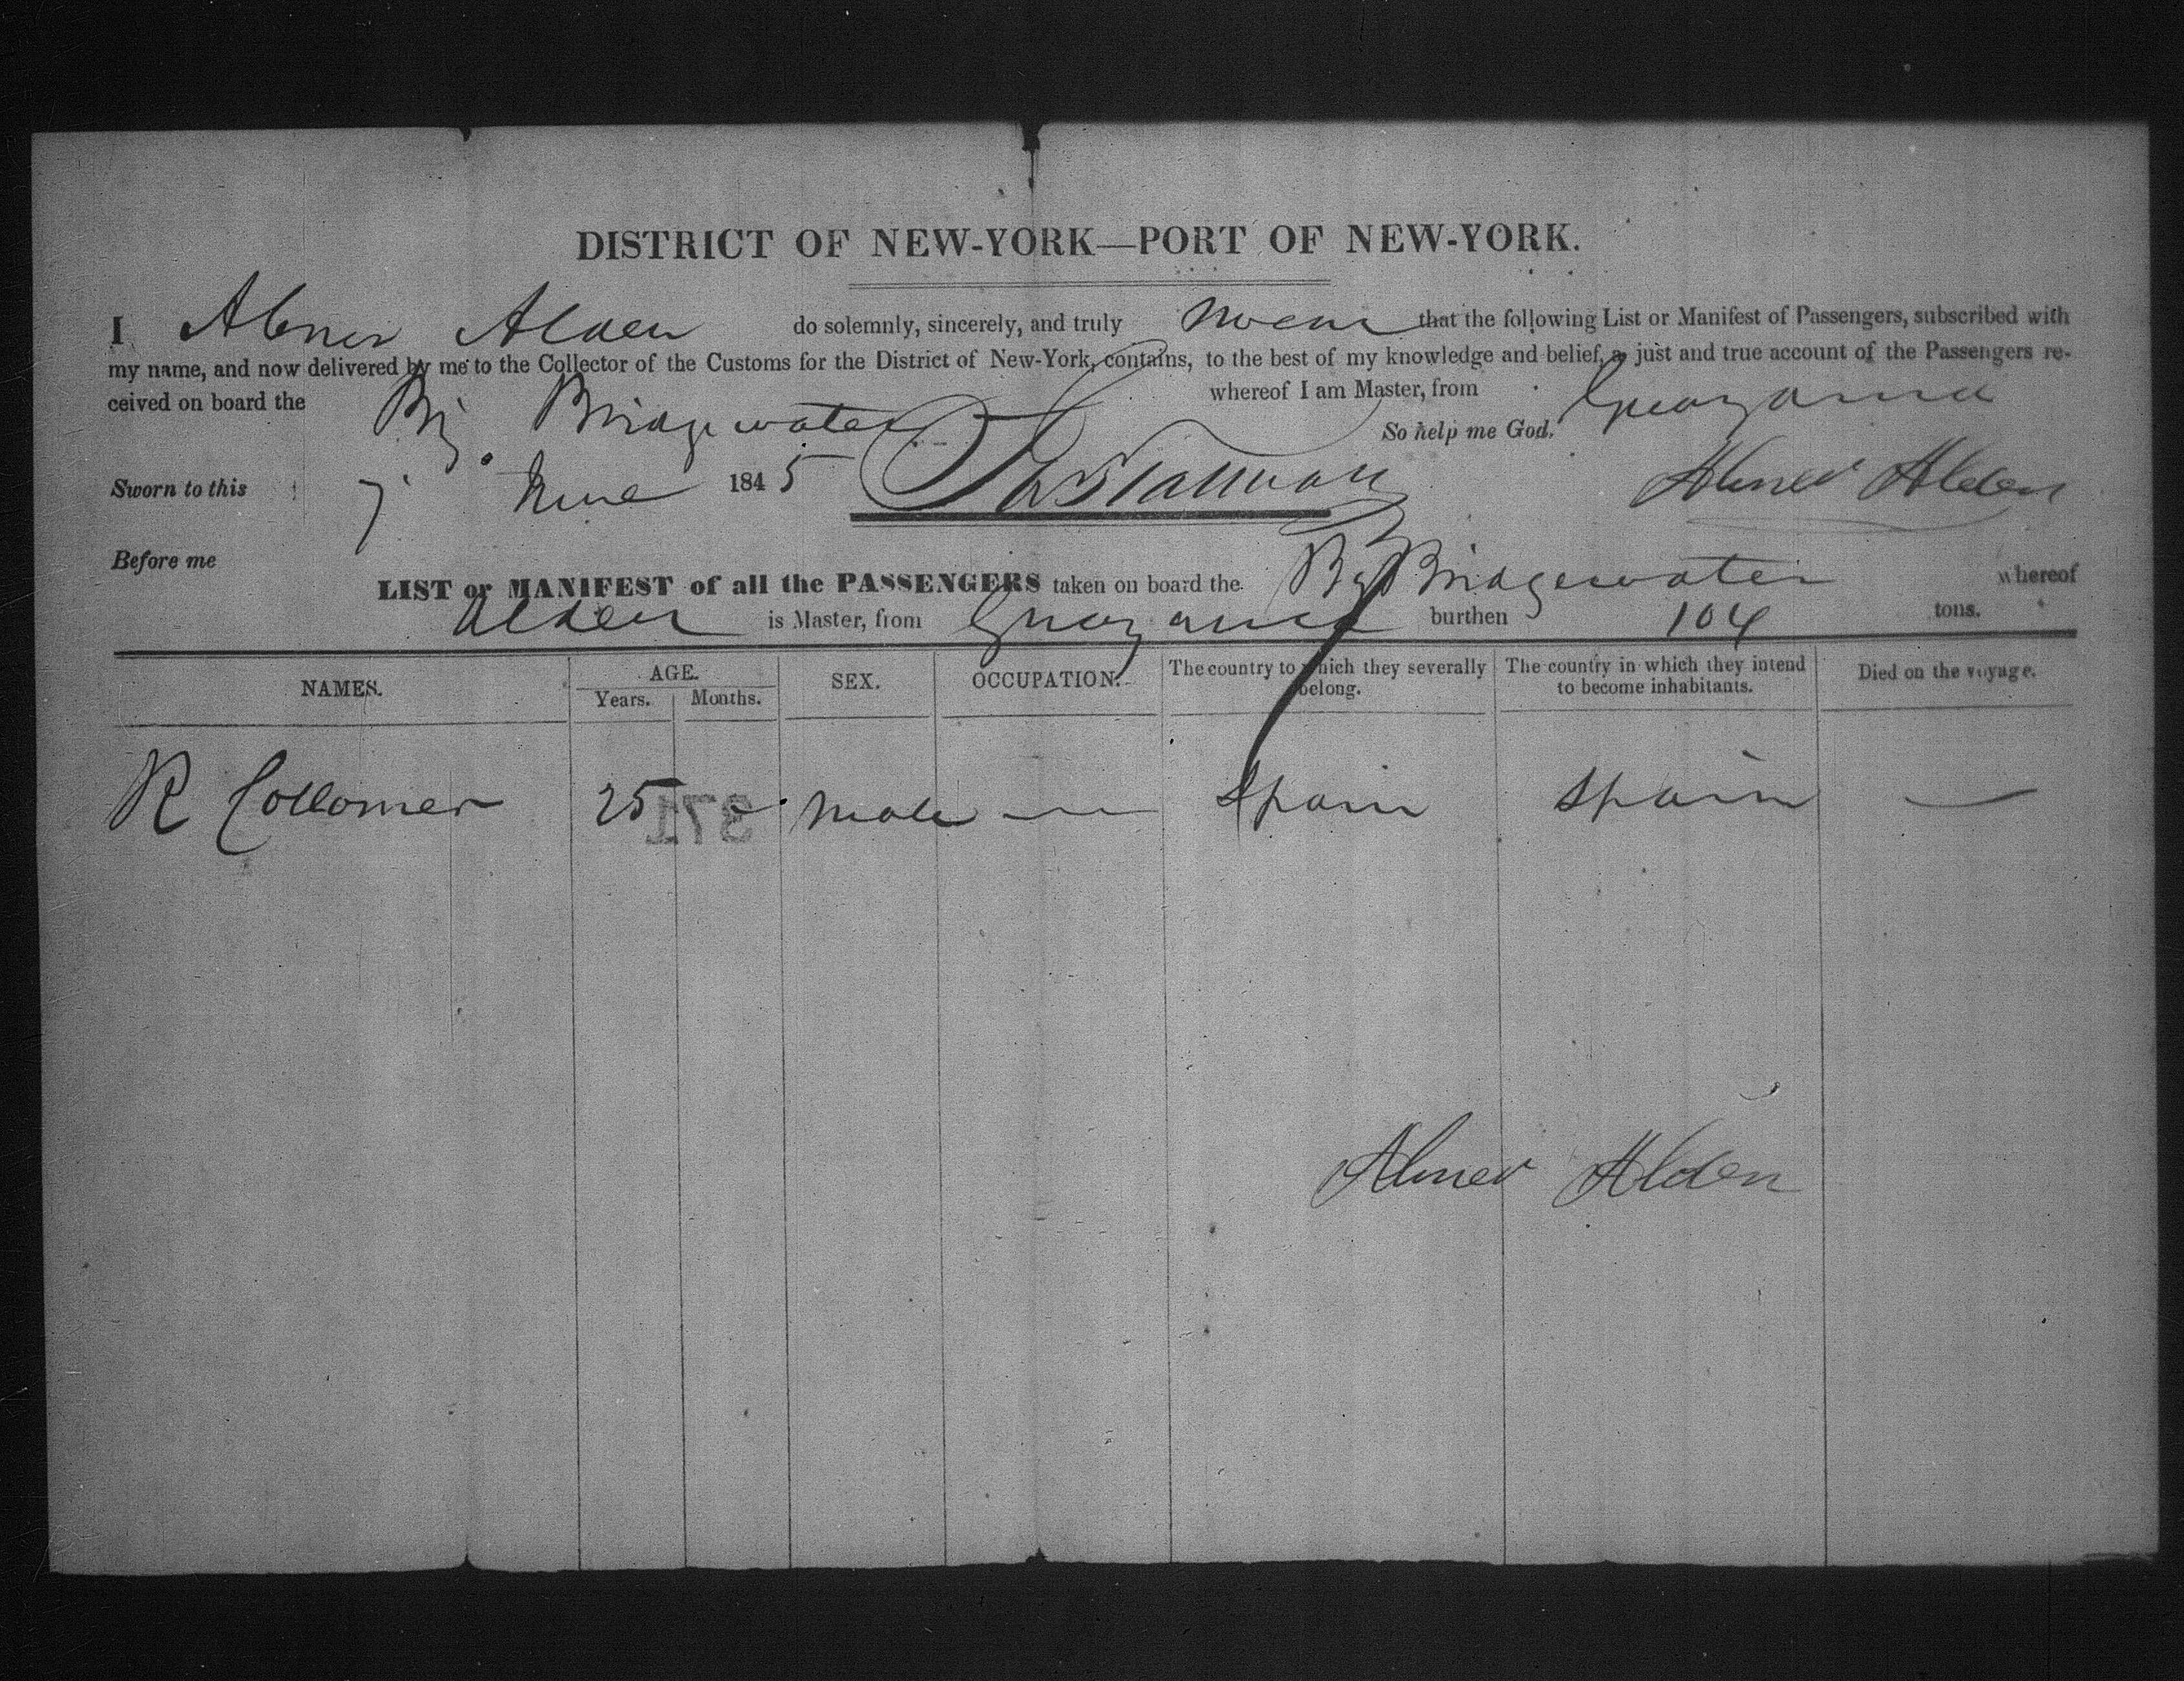 DISTRICT OF NEW-YORK—PORT OF NEW-YORK.
I Abner Alden do solemnly, sincerely, and truly swear that the following List or Manifest of Passengers, subscribed with
my name, and now delivered by me to the Collector of the Customs for the District of New-York, contains, to the best of my knowledge and belief, a just and true account of the Passengers re-
ceived on board the Brig Bridgewater whereof I am Master, from Guayama
So help me God.
Sworn to this 7 June 1845 Abner Alden
Before me
LIST or MANIFEST of all the PASSENGERS taken on board the Bg Bridgewater whereof
Alden is Master, from Guayama burthen 104 tons.
NAMES. AGE. Years. Months. SEX. OCCUPATION. The country to which they severally belong. The country in which they intend to become inhabitants. Died on the voyage.
R Collomer 25 - male — Spain Spain —
371
Abner Alden